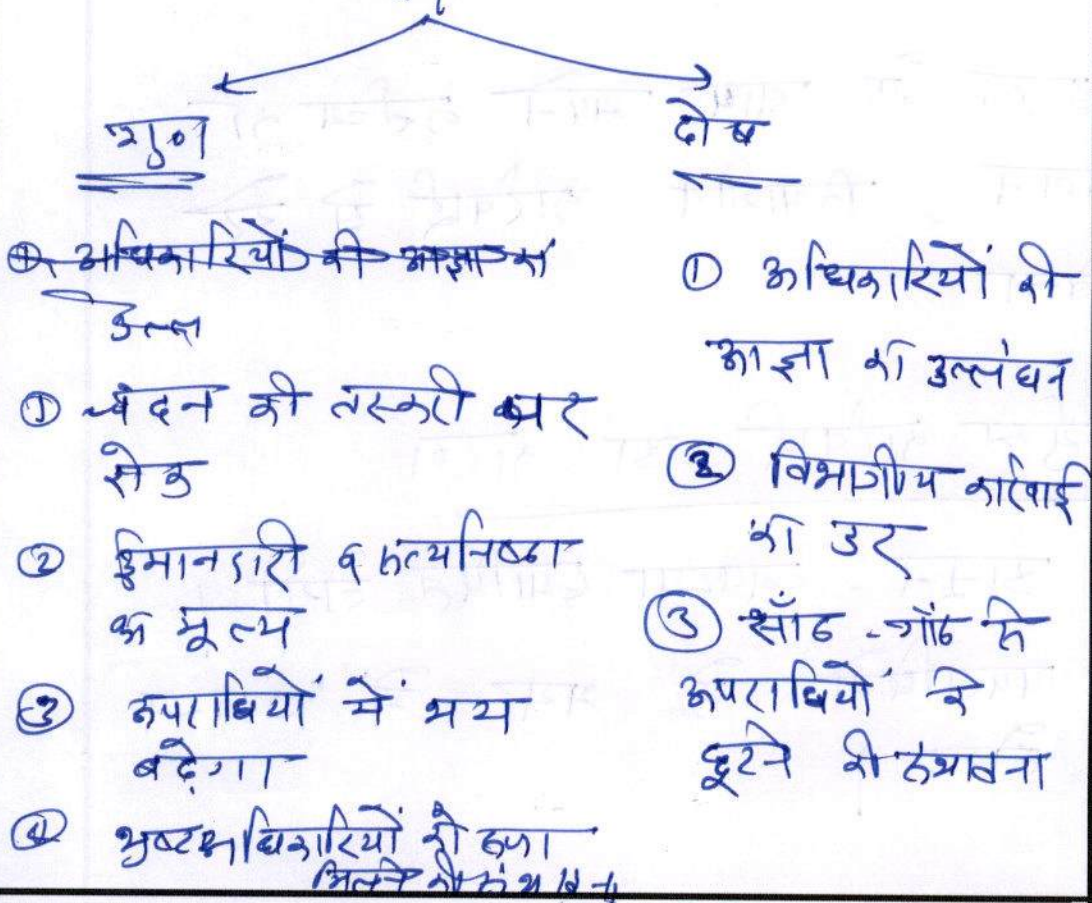 गुण
① अधिकारियों की आज्ञा का
उल्लं
① चंदन की तस्करी पर
रोक
② ईमानदारी व सत्यनिष्ठा
का मूल्य
③ अपराधियों में भय
बढ़ेगा
④ भ्रष्ट अधिकारियों को सजा
मिलने की संभावना
दोष
① अधिकारियों की
आज्ञा का उल्लंघन
② विभागीय कार्रवाई
का डर
③ साँठ-गाँठ से
अपराधियों के
छूटने की संभावना